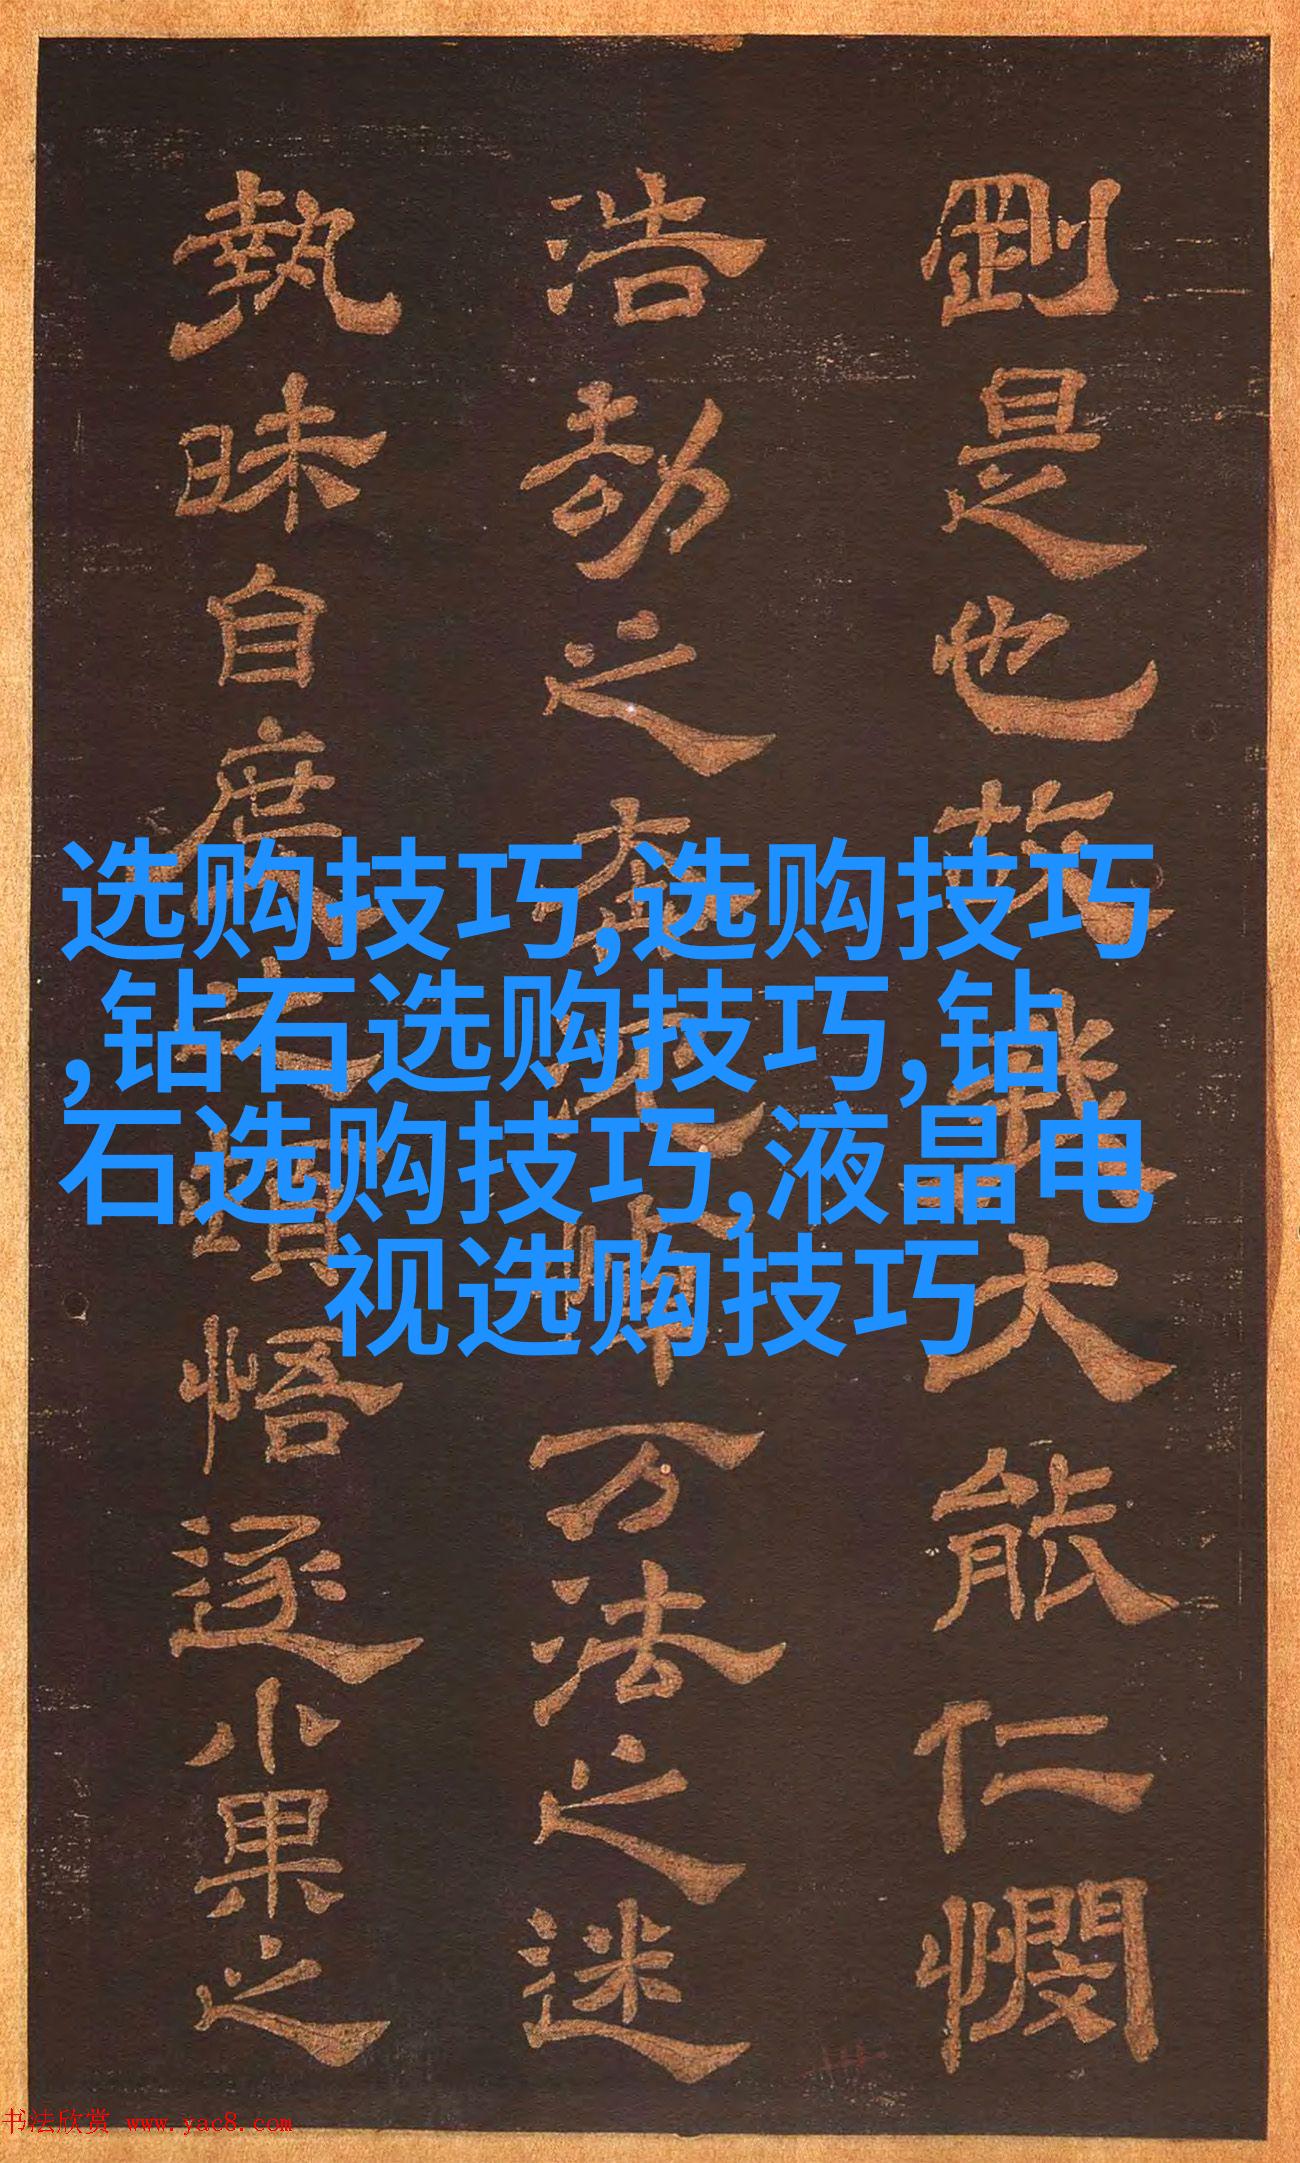 選购技巧,选购技巧
,钻石选购技巧,钻
石选购技巧,液晶电
视选购技巧
剛是也故我大能仁憫
浩劫之万法之迷
執昧自度之悟逐小果之
书法欣赏 www.yac8.com